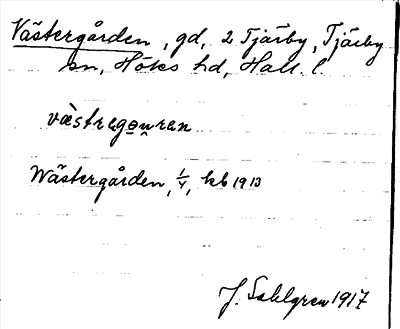 Västergården, gd, 2 Tjärby, Tjärby
sn, Höks hd, Hall. l.
væ̀stregɵuren
Wästergården, 1/4, kb 1913
J. Sahlgren 1917